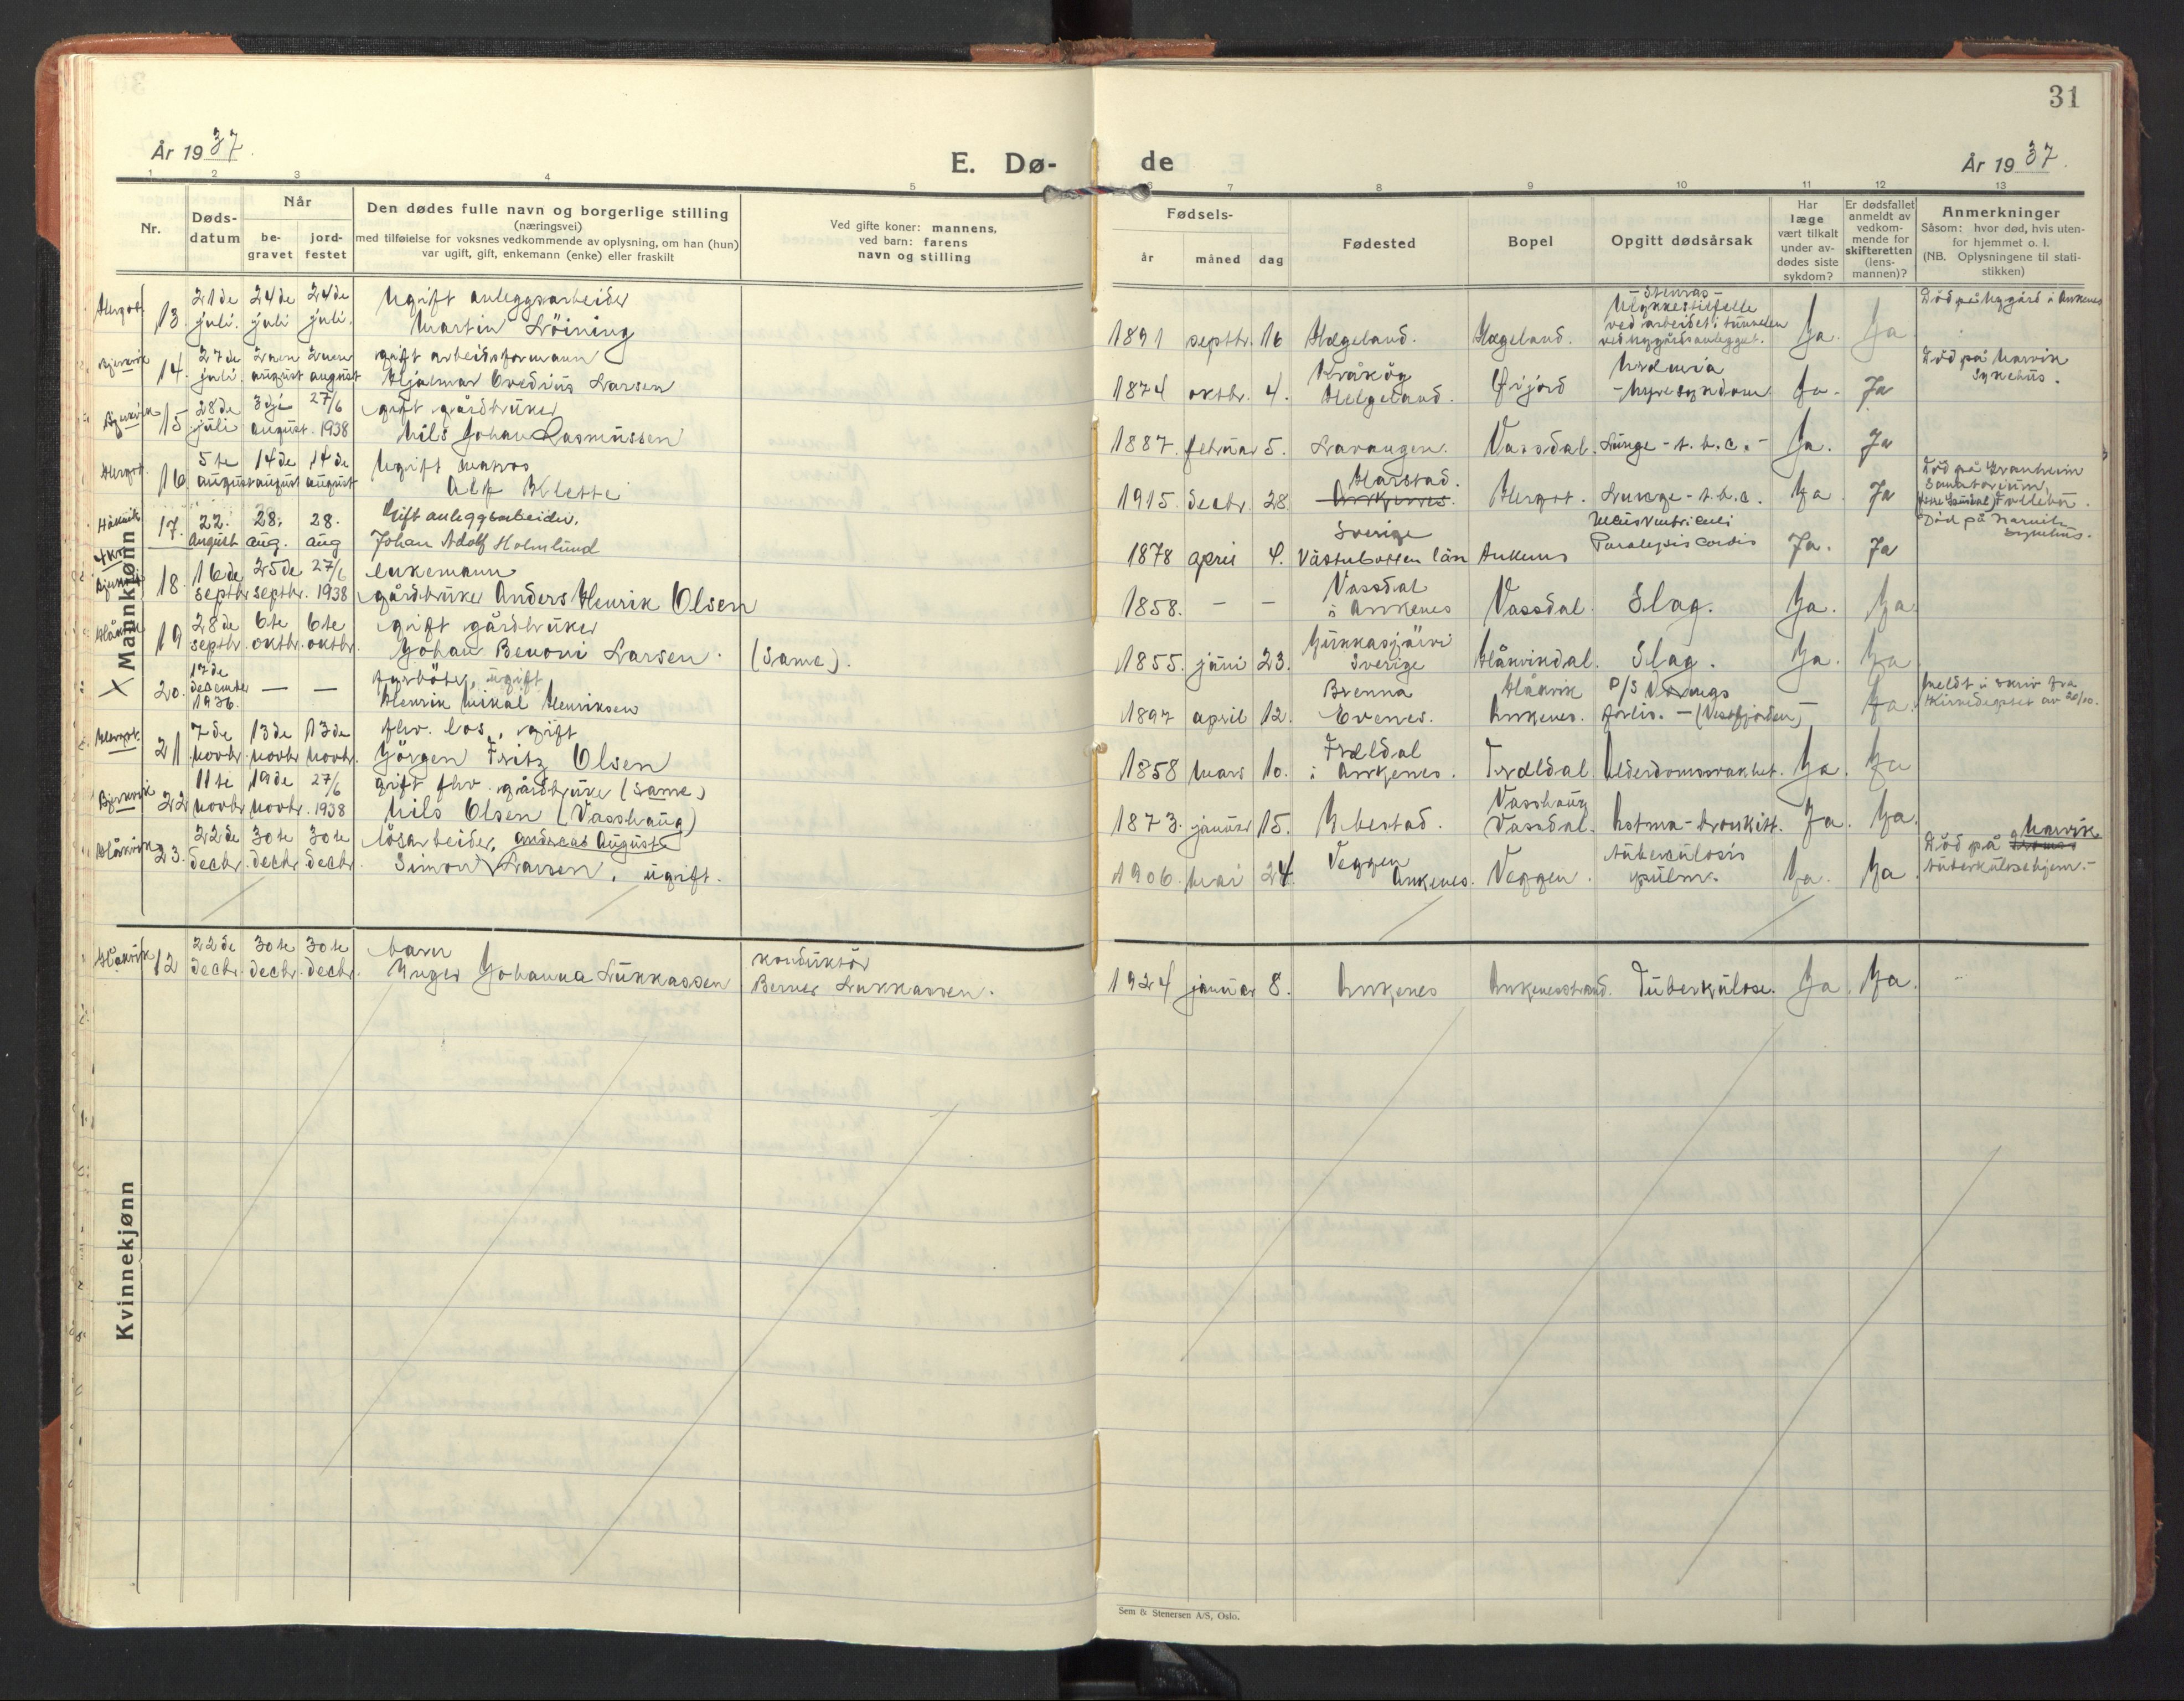 31
År 1937.
E. Dø-
de
År 1937.
1 2 3 4 5 6 7 8 9 10 11 12 13
Nr.
Døds-
datum
Når
be-
gravet
jord-
festet
Den dødes fulle navn og borgerlige stilling
(næringsvei)
med tilføielse for voksnes vedkommende av oplysning, om han (hun)
var ugift, gift, enkemann (enke) eller fraskilt
Ved gifte koner: mannens,
ved barn: farens
navn og stilling
Fødsels-
år måned dag
Fødested
Bopel
Opgitt dødsårsak
Har
læge
vært tilkalt
under av-
dødes siste
sykdom?
Er dødsfallet
anmeldt av
vedkom-
mende for
skifteretten
(lens-
mannen)?
Anmerkninger
Såsom: hvor død, hvis uten-
for hjemmet o. l.
(NB. Oplysningene til stati-
stikken)
Mannkjønn
Hergot 13. 21de juli. 24de juli 24de juli. Ugift anleggsarbeider
Martin Löining
1891 septbr. 16 Hægeland. Hægeland. - Stenras -
Ulykkestilfelle
ved arbeidet i tunnelen
ved Nygårdsanlegget. Ja. Ja. Död på Nygård i Ankenes
Bjerkvik 14. 27de juli. 2nen august 2nen august gift arbeidsformann
Hjalmar Ovedius Larsen
1874 oktbr. 4. Kråkög
Helgeland. Öijord Uræmia
- Nyresygdom Ja. Ja Död på Narvik
Sykehus.
Bjerkvik 15 28de juli 3dje august. 27/6 1938 gift gårdbruker
Nils Johan Rasmussen
1887. februar 5. Lavangen. Vassdal. Lunge - t.b.c. - Ja. Ja
Hergot. 16. 5te august 14de august 14de august Ugift matros
Alf Klette
1915. decbr. 28. Harstad.
Ankenes. Hergot. Lunge - t.b.c. Ja. Ja Död på Granheim
Sanatorium,
Follebu.
Håkvik 17. 22. August 28. aug. 28. aug Gift anleggsarbeider.
Johan Adolf Holmlund
1878 april 4. Sverige
Västerbotten län Ankenes Ulcus Ventriculi
Paralysis Cordis Ja. Ja Död på Narvik
Sykehus.
Bjerkvik 18. 16de septbr 25de septbr. 27/6 1938 enkemann
gårdbruker Anders Henrik Olsen
1858. - - Vassdal
i Ankenes Vassdal. Slag. Ja. Ja.
Håkvik 19 28de septbr. 6te oktbr. 6te oktbr. gift gårdbruker
Johan Benoni Larsen. (Same).
1855. juni 23. Jukkasjärvi
Sverige Håkvikdal. Slag. Ja. Ja
X 20. 17de desember 1936. - - fyrböter, ugift
Henrik Mikal Henriksen
1897 april 12. Brenna
Evenes. Håkvik
Ankenes. D/S Varangs
forlis. - (Vestfjorden) Ja. Meldt i skriv fra
Kirkedeptet av 20/10.
Hergot. 21 7de novbr. 13de novbr. 13de novbr. fhv. los, gift
Jörgen Fritz Olsen
1858 mars 10. Trældal
i Ankenes. Trældal Alderdomssvakhet. Ja. Ja
Bjerkvik 22 11te novbr. 19de novbr. 27/6 1938 gift fhv. gårdbruker (same)
Nils Olsen (Vasshaug)
1873. januar 15. Ibestad. Vasshaug
Vassdal. Astma-bronkitt. Ja. Ja.
Håkvik 23. 22de decbr. 30te decbr 30te decbr. lösarbeider, Andreas August
Simon Larsen, ugift.
1906. mai 24. Veggen
Ankenes. Veggen. Tuberkulosis
pulm. Ja. Ja. Död på Narvik
tuberkulosehjem. -
Kvinnekjønn
Håkvik 12 22de decbr. 30te decbr. 30te decbr. barn
Inger Johanna Lukkassen konduktör
Berner Lukkassen.
1924 januar 8. Ankenes Ankenesstrand. Tuberkulose. Ja. Ja.
Sem & Stenersen A/S, Oslo.